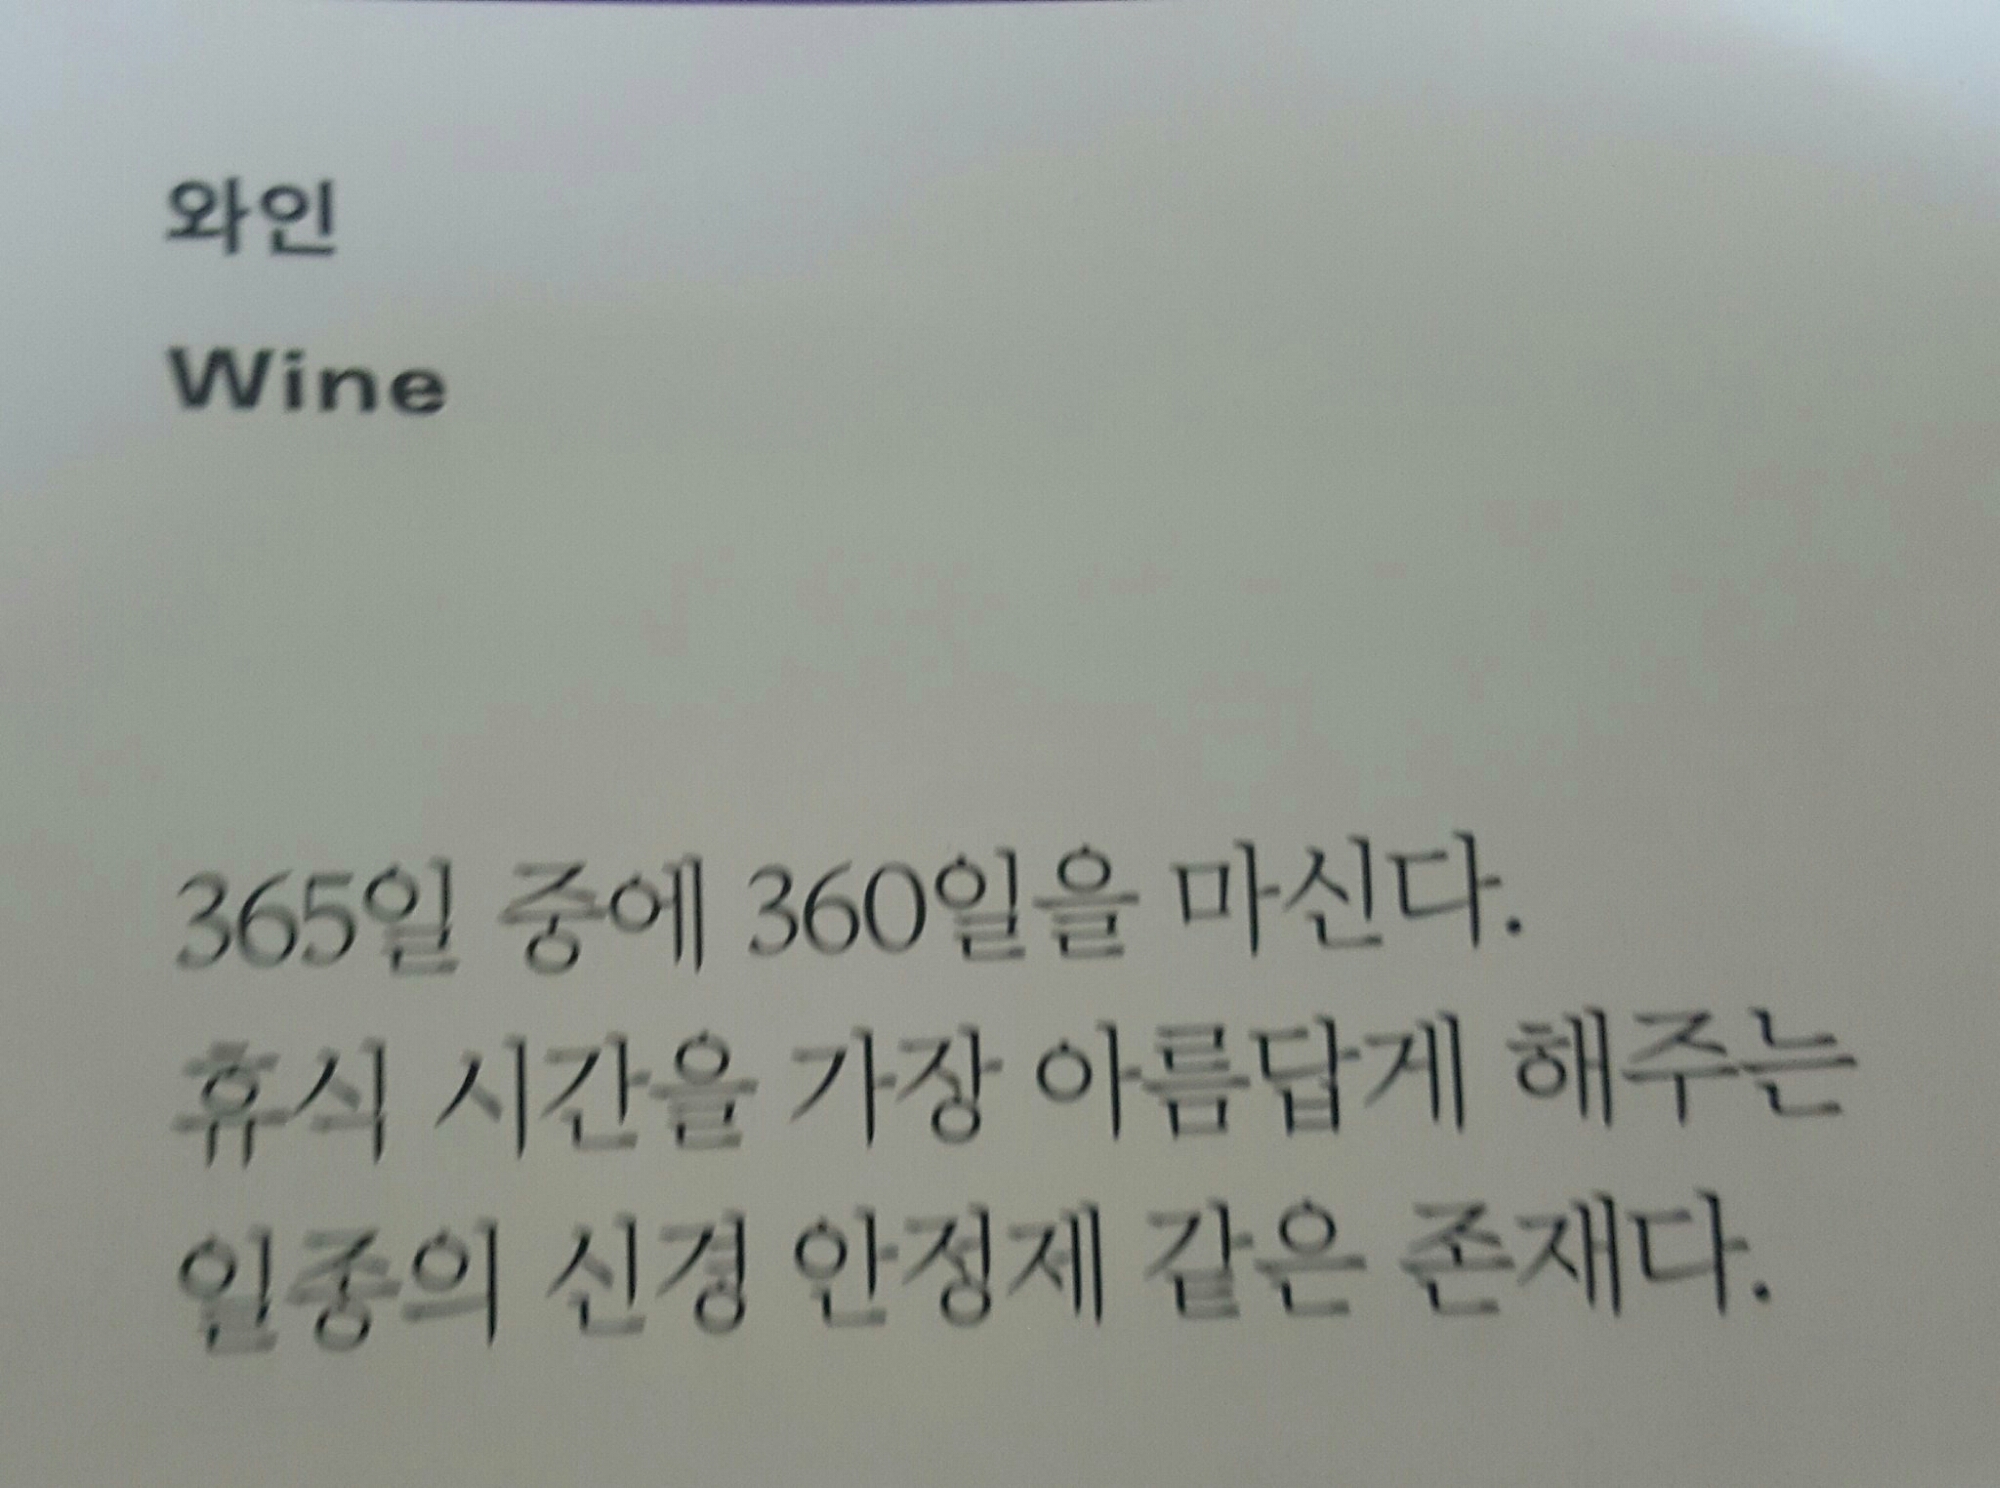 와인
Wine
365일 중에 360일을 마신다.
휴식 시간을 가장 아름답게 해주는
일종의 신경 안정제 같은 존재다.